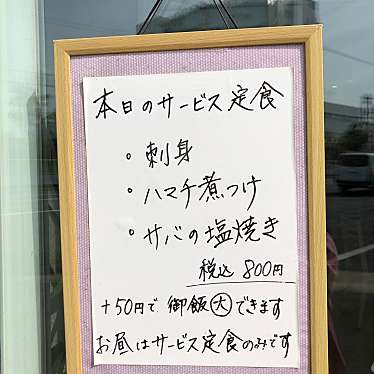 本日のサービス定食
・刺身
・ハマチ煮つけ
・サバの塩焼き
税込 800円
+50円で 御飯大できます
お昼はサービス定食のみです